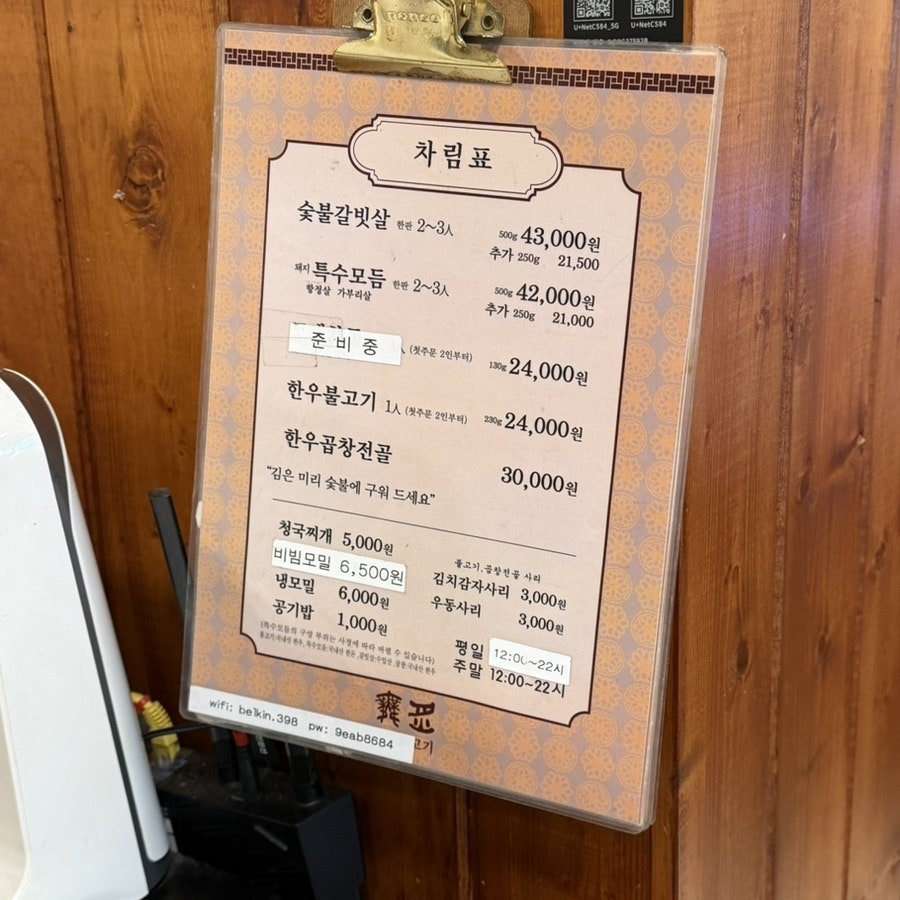 U+NetC584_5G U+NetC584
차림표
숯불갈빗살 한판 2~3人 500g 43,000원
추가 250g 21,500
돼지 특수모듬 한판 2~3人 500g 42,000원
항정살 가부리살 추가 250g 21,000
준비중 (첫주문 2인부터) 130g 24,000원
한우불고기 1人 (첫주문 2인부터) 230g 24,000원
한우곱창전골 30,000원
"김은 미리 숯불에 구워 드세요"
청국찌개 5,000원
비빔모밀 6,500원
냉모밀 6,000원
공기밥 1,000원
불고기.곱창전골 사리
김치감자사리 3,000원
우동사리 3,000원
(특수모듬의 구성 부위는 사정에 따라 바뀔 수 있습니다)
불고기:국내산 한우, 특수모듬:국내산 한돈, 갈빗살:수입산, 곱창:국내산 한우
평일 12:00~22시
주말 12:00~22시
고기
wifi: belkin.398 pw: 9eab8684